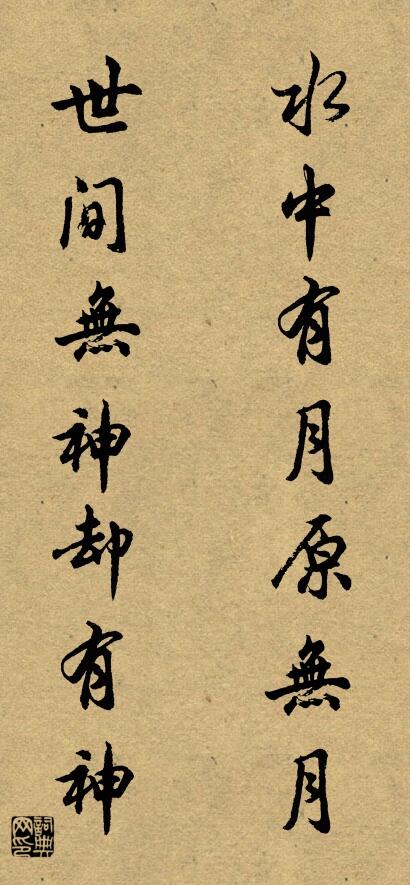 水中有月原無月
世间無神却有神
詞典网印